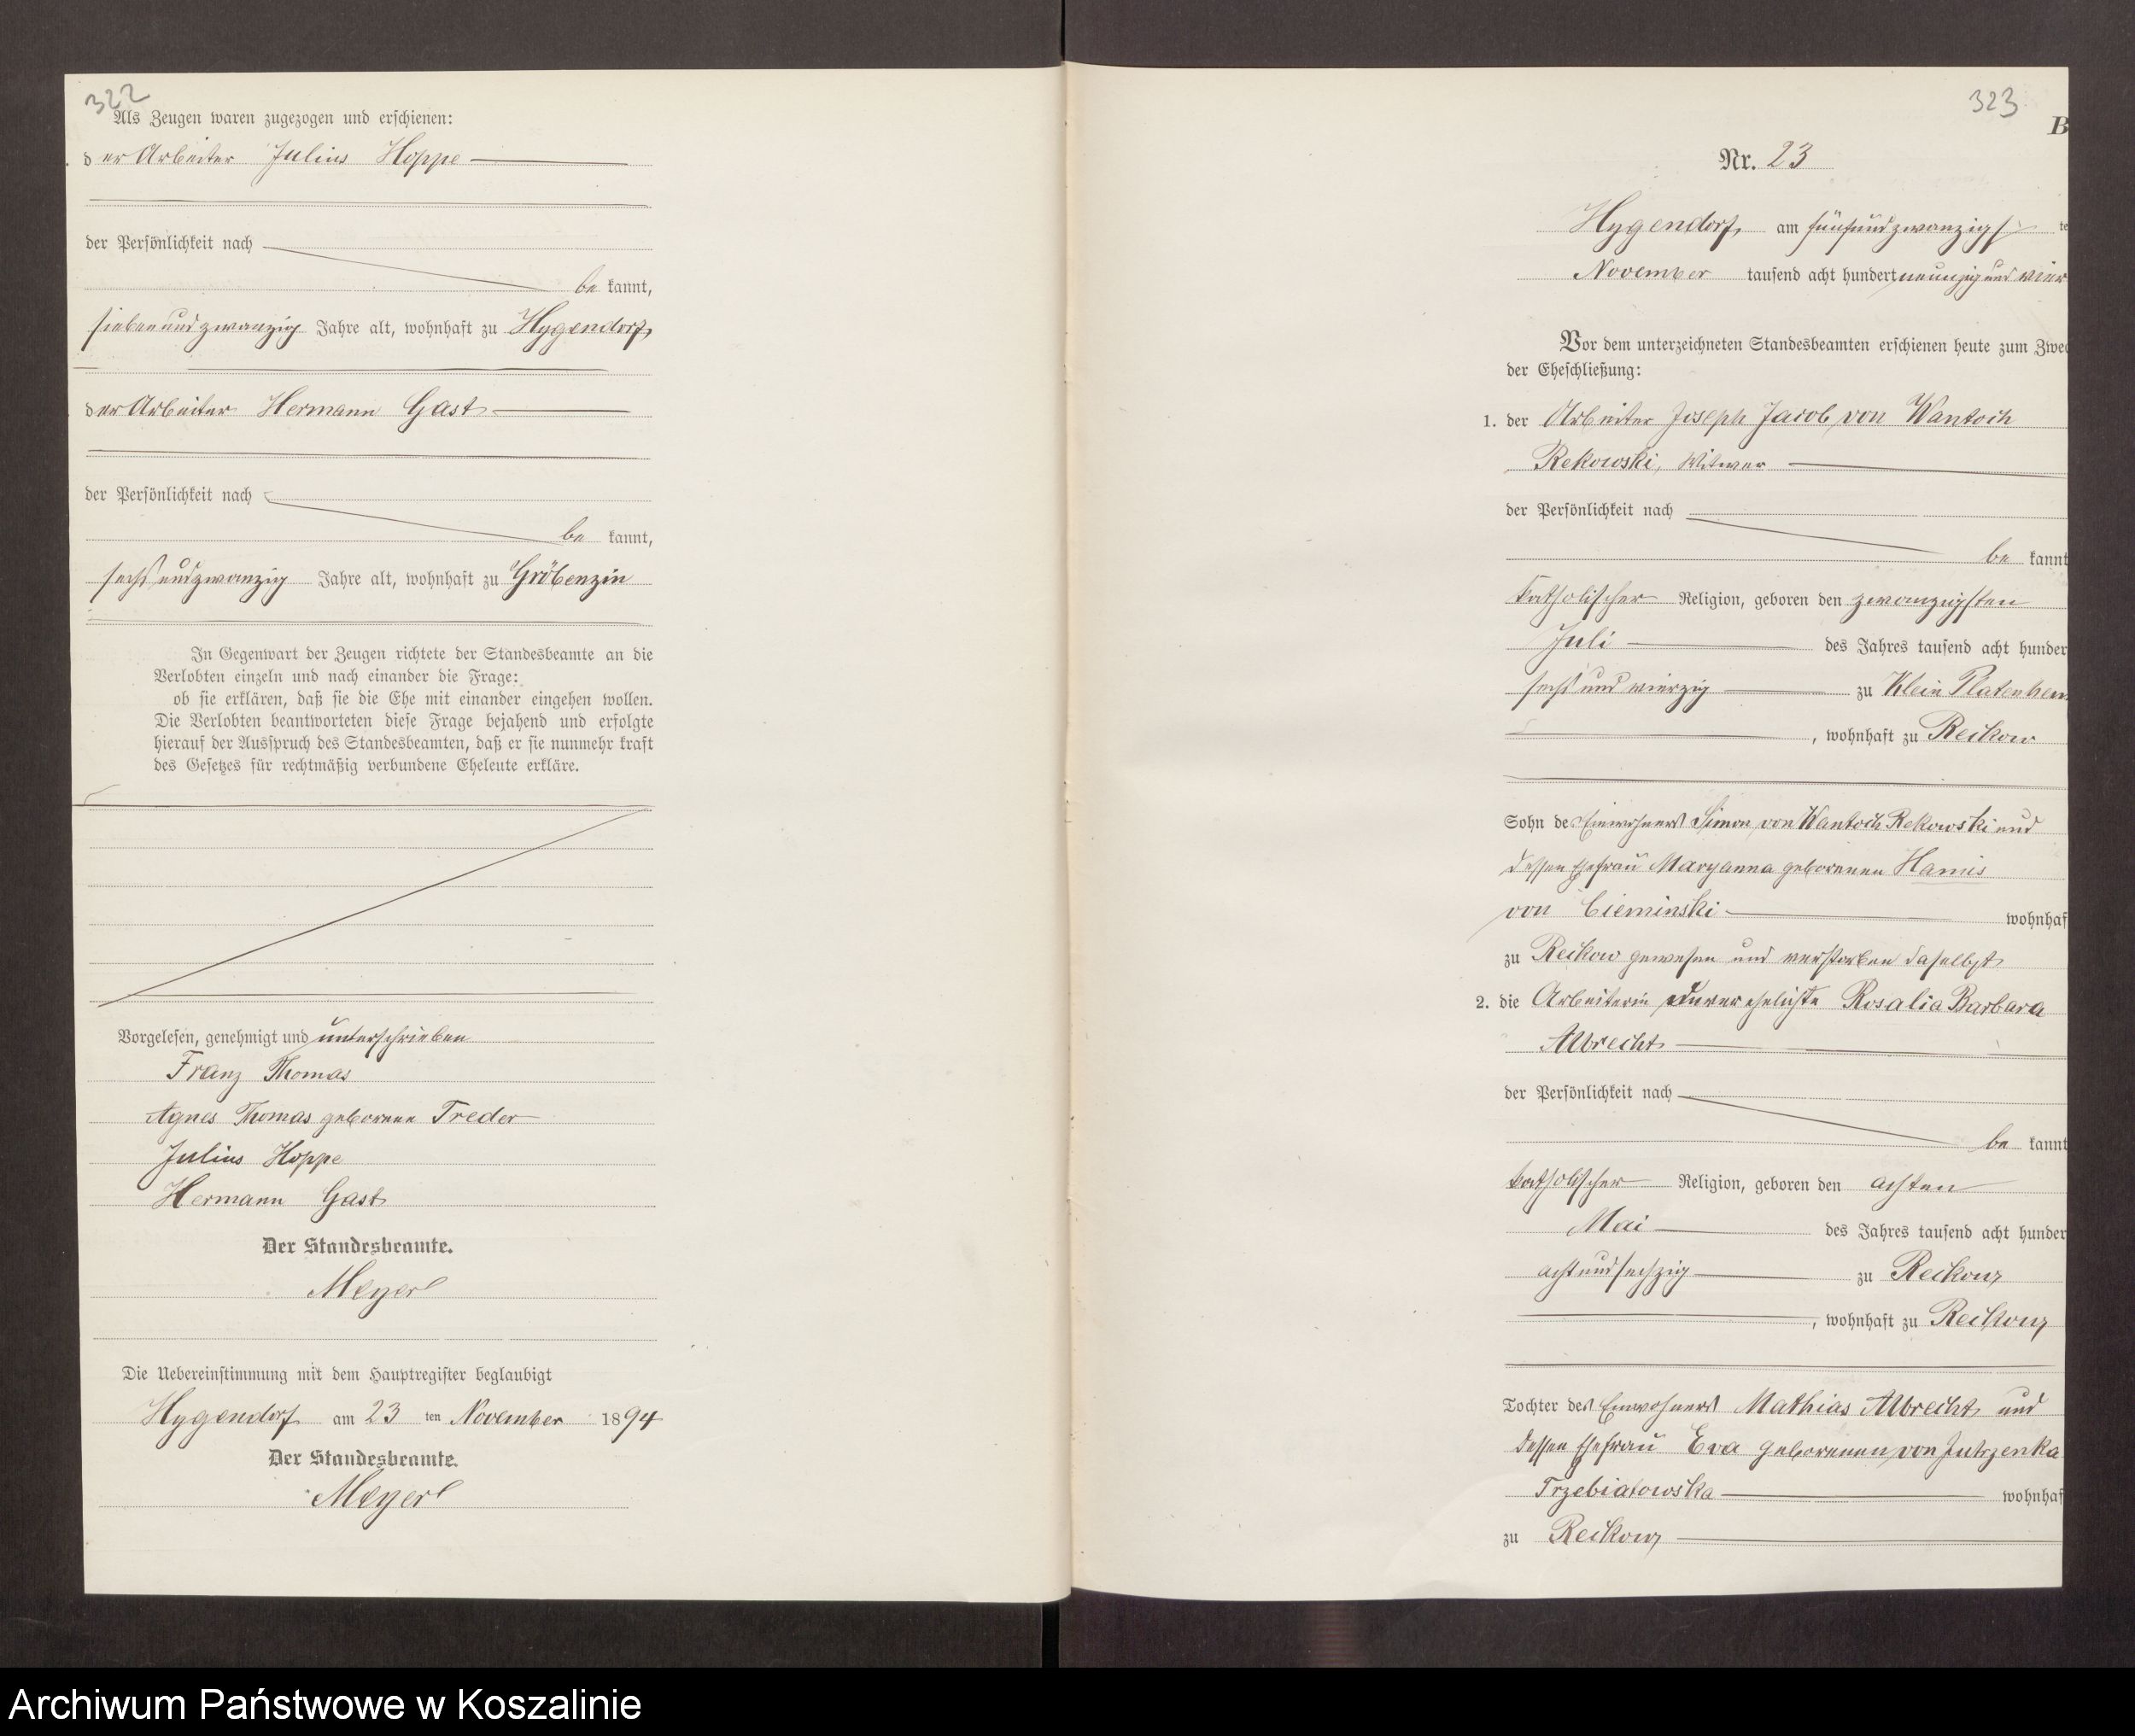 322
Als Zeugen waren zugezogen und erschienen:
der Arbeiter Julius Hoppe
der Persönlichkeit nach
be kannt,
siebenundzwanzig Jahre alt, wohnhaft zu Hygendorf
der Arbeiter Hermann Gast
der Persönlichkeit nach
be kannt,
sechsundzwanzig Jahre alt, wohnhaft zu Gröbenzin
In Gegenwart der Zeugen richtete der Standesbeamte an die
Verlobten einzeln und nach einander die Frage:
ob sie erklären, daß sie die Ehe mit einander eingehen wollen.
Die Verlobten beantworteten diese Frage bejahend und erfolgte
hierauf der Ausspruch des Standesbeamten, daß er sie nunmehr kraft
des Gesetzes für rechtmäßig verbundene Eheleute erkläre.
Vorgelesen, genehmigt und unterschrieben
Franz Thomas
Agnes Thomas geborene Treder
Julius Hoppe
Hermann Gast
Der Standesbeamte.
Meyer
Die Uebereinstimmung mit dem Hauptregister beglaubigt
Hygendorf am 23 ten November 1894
Der Standesbeamte.
Meyer
323
B
Nr. 23
Hygendorf am fünfundzwanzigs te
November tausend acht hundert neunzig und vier
Vor dem unterzeichneten Standesbeamten erschienen heute zum Zwec
der Eheschließung:
1. der Arbeiter Joseph Jacob von Wantoch
Rekowski, Witwer
der Persönlichkeit nach
be kannt
katholischer Religion, geboren den zwanzigsten
Juli des Jahres tausend acht hunder
sechs und vierzig zu Klein Platenhem
, wohnhaft zu Reckow
Sohn des Einwohners Simon von Wantoch Rekowski und
dessen Ehefrau Maryanna geborenen Hamis
von Cieminski wohnhaf
zu Reckow gewesen und verstorben daselbst
2. die Arbeiterin unverehelichte Rosalia Barbara
Albrecht
der Persönlichkeit nach
be kannt
katholischer Religion, geboren den achten
Mai des Jahres tausend acht hunder
achtundsechzig zu Reckow
, wohnhaft zu Reckow
Tochter des Einwohners Mathias Albrecht und
dessen Ehefrau Eva geborenen von Jutrzenka
Trzebiatowska wohnhaf
zu Reckow
Archiwum Państwowe w Koszalinie